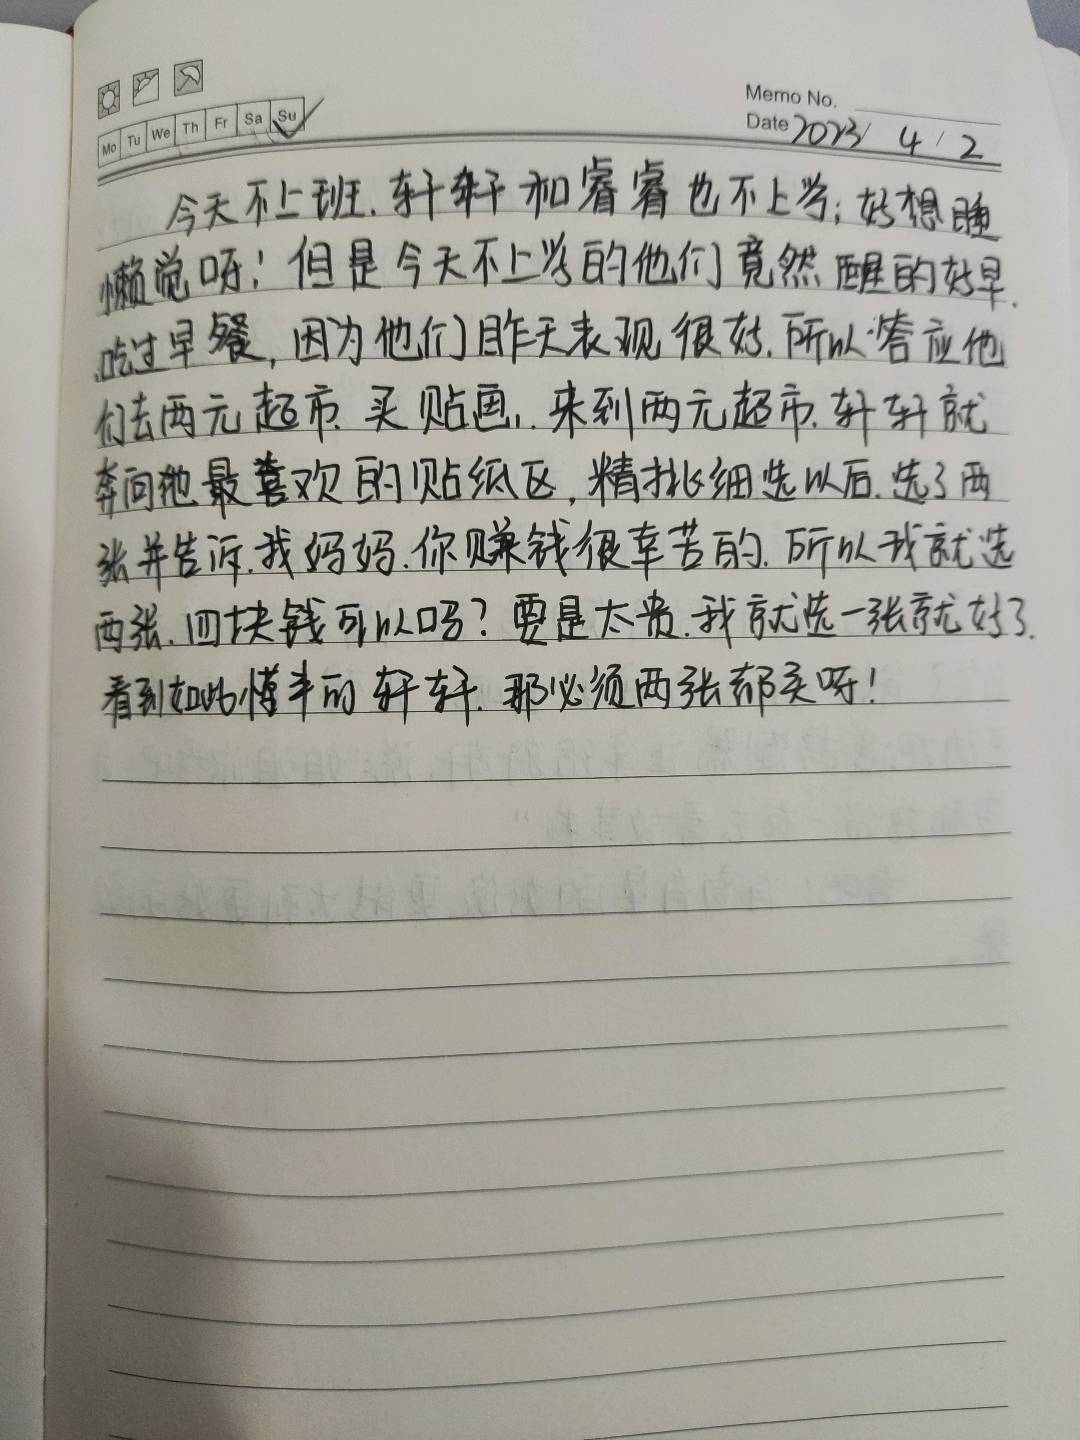 Memo No.
Mo Tu We Th Fr Sa Su
Date 2023/ 4 / 2
今天不上班.轩轩和睿睿也不上学;好想睡
懒觉呀!但是今天不上学的他们竟然醒的好早.
吃过早餐,因为他们昨天表现很好.所以答应他
们去两元超市.买贴画,.来到两元超市.轩轩就
奔向他最喜欢的贴纸区,精挑细选以后.选了两
张并告诉.我妈妈.你赚钱很辛苦的.所以我就选
两张.四块钱可以吗?要是太贵.我就选一张就好了.
看到如此懂事的轩轩.那必须两张都买呀!